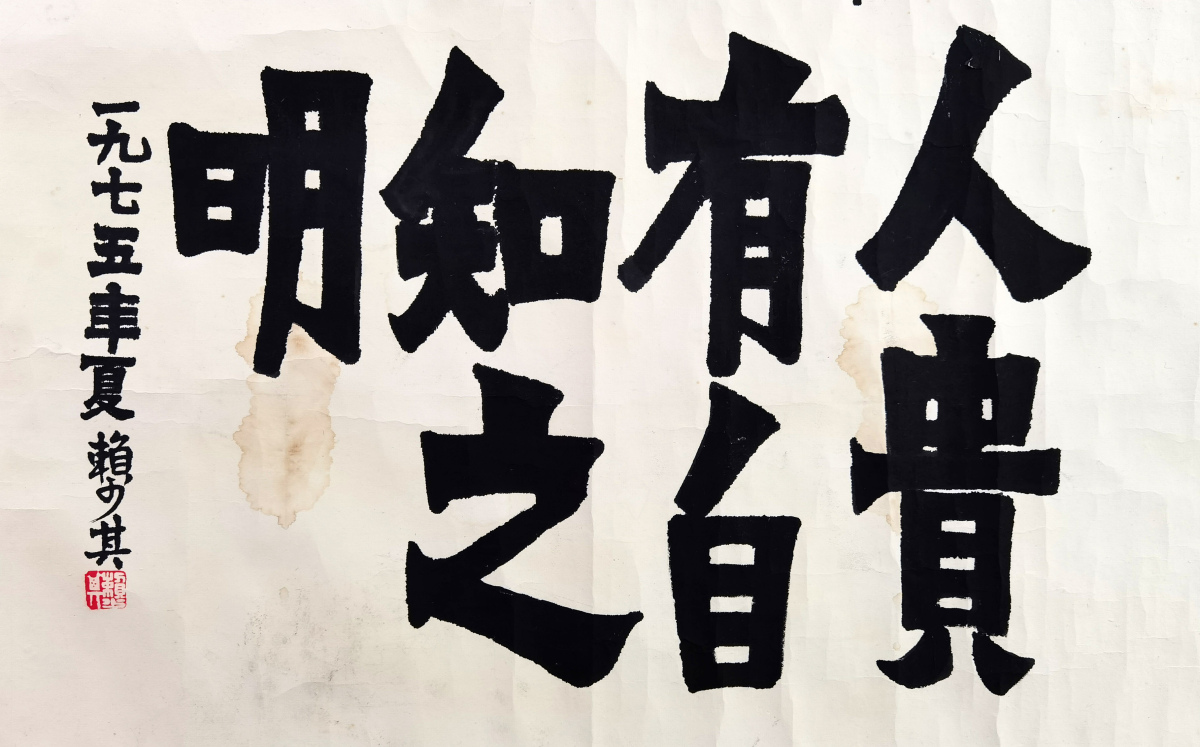 人貴
有自
知之
明
一九七五年夏賴少其